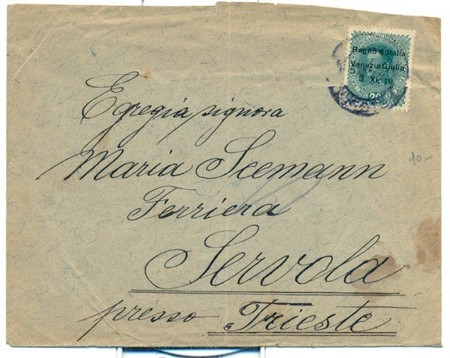 Regno d'Italia
Venezia Giulia
3. XI. 18
20
Egregia signora
Maria Seemann
Ferriera
Servola
presso Trieste
10-